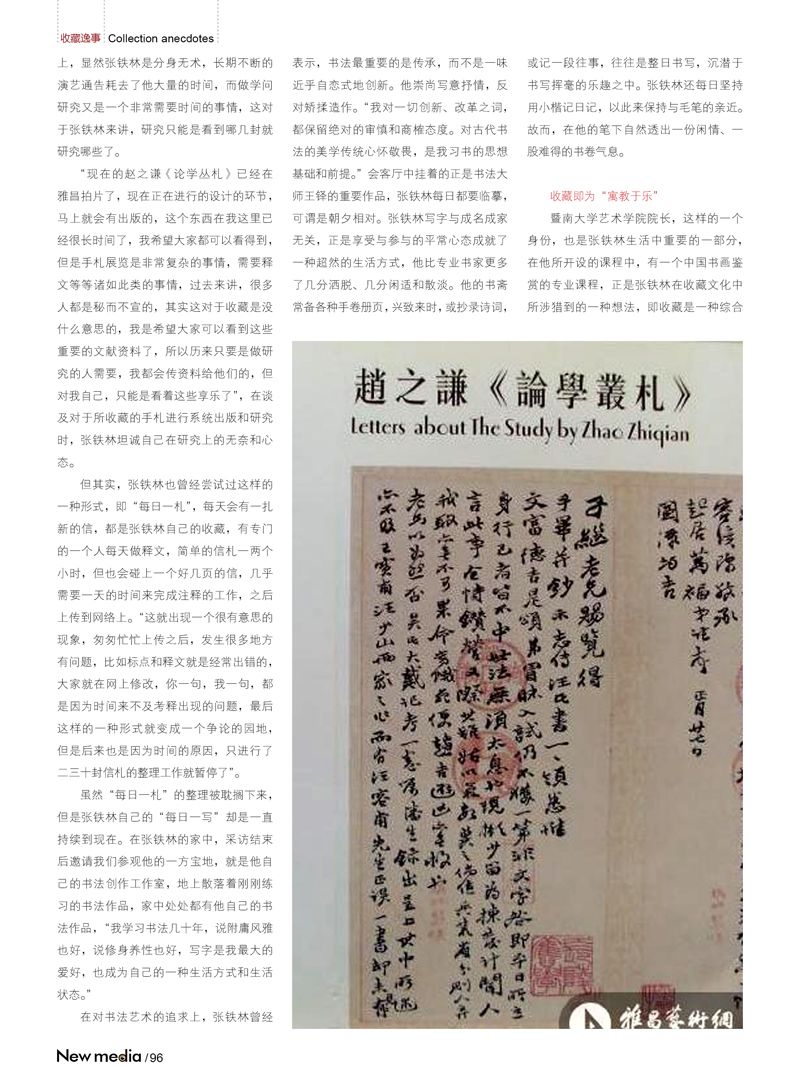 收藏逸事 Collection anecdotes
上，显然张铁林是分身无术，长期不断的
演艺通告耗去了他大量的时间，而做学问
研究又是一个非常需要时间的事情，这对
于张铁林来讲，研究只能是看到哪几封就
研究哪些了。
“现在的赵之谦《论学丛札》已经在
雅昌拍片了，现在正在进行的设计的环节，
马上就会有出版的，这个东西在我这里已
经很长时间了，我希望大家都可以看得到，
但是手札展览是非常复杂的事情，需要释
文等等诸如此类的事情，过去来讲，很多
人都是秘而不宣的，其实这对于收藏是没
什么意思的，我是希望大家可以看到这些
重要的文献资料了，所以历来只要是做研
究的人需要，我都会传资料给他们的，但
对我自己，只能是看着这些享乐了”，在谈
及对于所收藏的手札进行系统出版和研究
时，张铁林坦诚自己在研究上的无奈和心
态。
但其实，张铁林也曾经尝试过这样的
一种形式，即“每日一札”，每天会有一扎
新的信，都是张铁林自己的收藏，有专门
的一个人每天做释文，简单的信札一两个
小时，但也会碰上一个好几页的信，几乎
需要一天的时间来完成注释的工作，之后
上传到网络上。“这就出现一个很有意思的
现象，匆匆忙忙上传之后，发生很多地方
有问题，比如标点和释文就是经常出错的，
大家就在网上修改，你一句，我一句，都
是因为时间来不及考释出现的问题，最后
这样的一种形式就变成一个争论的园地，
但是后来也是因为时间的原因，只进行了
二三十封信札的整理工作就暂停了”。
虽然“每日一札”的整理被耽搁下来，
但是张铁林自己的“每日一写”却是一直
持续到现在。在张铁林的家中，采访结束
后邀请我们参观他的一方宝地，就是他自
己的书法创作工作室，地上散落着刚刚练
习的书法作品，家中处处都有他自己的书
法作品，“我学习书法几十年，说附庸风雅
也好，说修身养性也好，写字是我最大的
爱好，也成为自己的一种生活方式和生活
状态。”
在对书法艺术的追求上，张铁林曾经
表示，书法最重要的是传承，而不是一味
近乎自恋式地创新。他崇尚写意抒情，反
对矫揉造作。“我对一切创新、改革之词，
都保留绝对的审慎和商榷态度。对古代书
法的美学传统心怀敬畏，是我习书的思想
基础和前提。”会客厅中挂着的正是书法大
师王铎的重要作品，张铁林每日都要临摹，
可谓是朝夕相对。张铁林写字与成名成家
无关，正是享受与参与的平常心态成就了
一种超然的生活方式，他比专业书家更多
了几分洒脱、几分闲适和散淡。他的书斋
常备各种手卷册页，兴致来时，或抄录诗词，
或记一段往事，往往是整日书写，沉潜于
书写挥毫的乐趣之中。张铁林还每日坚持
用小楷记日记，以此来保持与毛笔的亲近。
故而，在他的笔下自然透出一份闲情、一
股难得的书卷气息。
收藏即为“寓教于乐”
暨南大学艺术学院院长，这样的一个
身份，也是张铁林生活中重要的一部分，
在他所开设的课程中，有一个中国书画鉴
赏的专业课程，正是张铁林在收藏文化中
所涉猎到的一种想法，即收藏是一种综合
趙之謙《論學叢札》
Letters about The Study by Zhao Zhiqian
雅昌藝術網
New media / 96